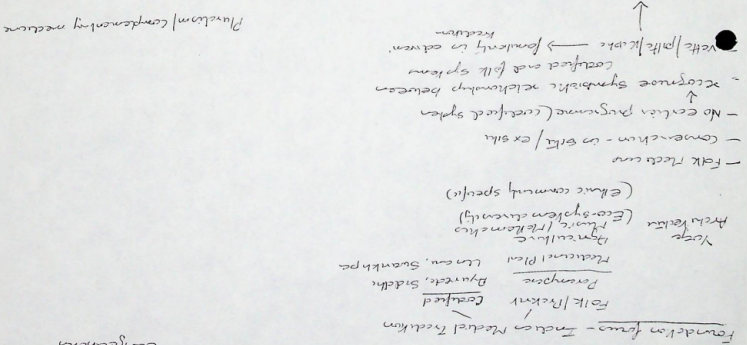 Foundation focus - Indian Medical Tradition
Folk/Prakrit Codified
Parampara Ayurveda, Siddhi
Medicinal Plant Unani, Swarikhpa
Agriculture
Yoga Music/Mathematics
Architecture (Eco-system diversity)
(Ethnic community specific)
- Folk Medicine
- Conservation - in situ / ex situ
- No earlier programme (codified system
- recognise symbiotic relationship between
codified and folk systems
- vatta/pitta/kapha → fundamentally in
tradition
Pluralism/complementary medicine